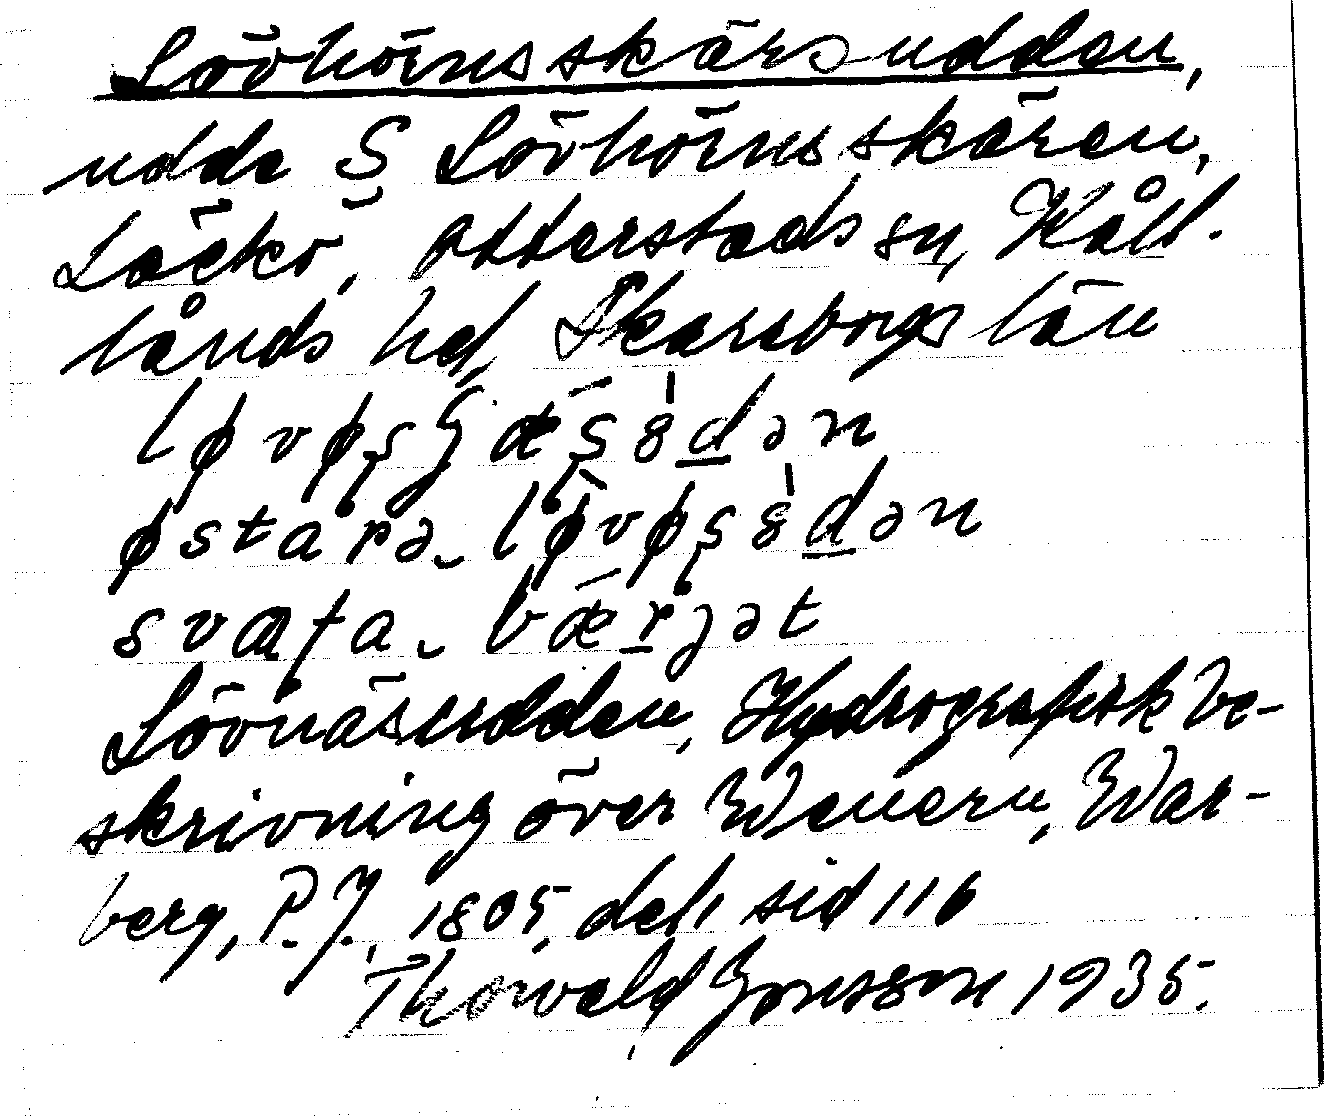 Lövhörnsskärsudden,
udde S Lövhörnsskären,
Läckö, Otterstads sn, Kåll-
lands hd, Skaraborgs län
løvøʂʃæʂ8dən
østarə løvøʂ8dən
svaʈa bærjət
Lövnäsudden, Hydrografisk be-
skrivning över Wenern, War-
berg, P. J., 1805, del 1, sid 116
Thorvald Jonsson 1935.